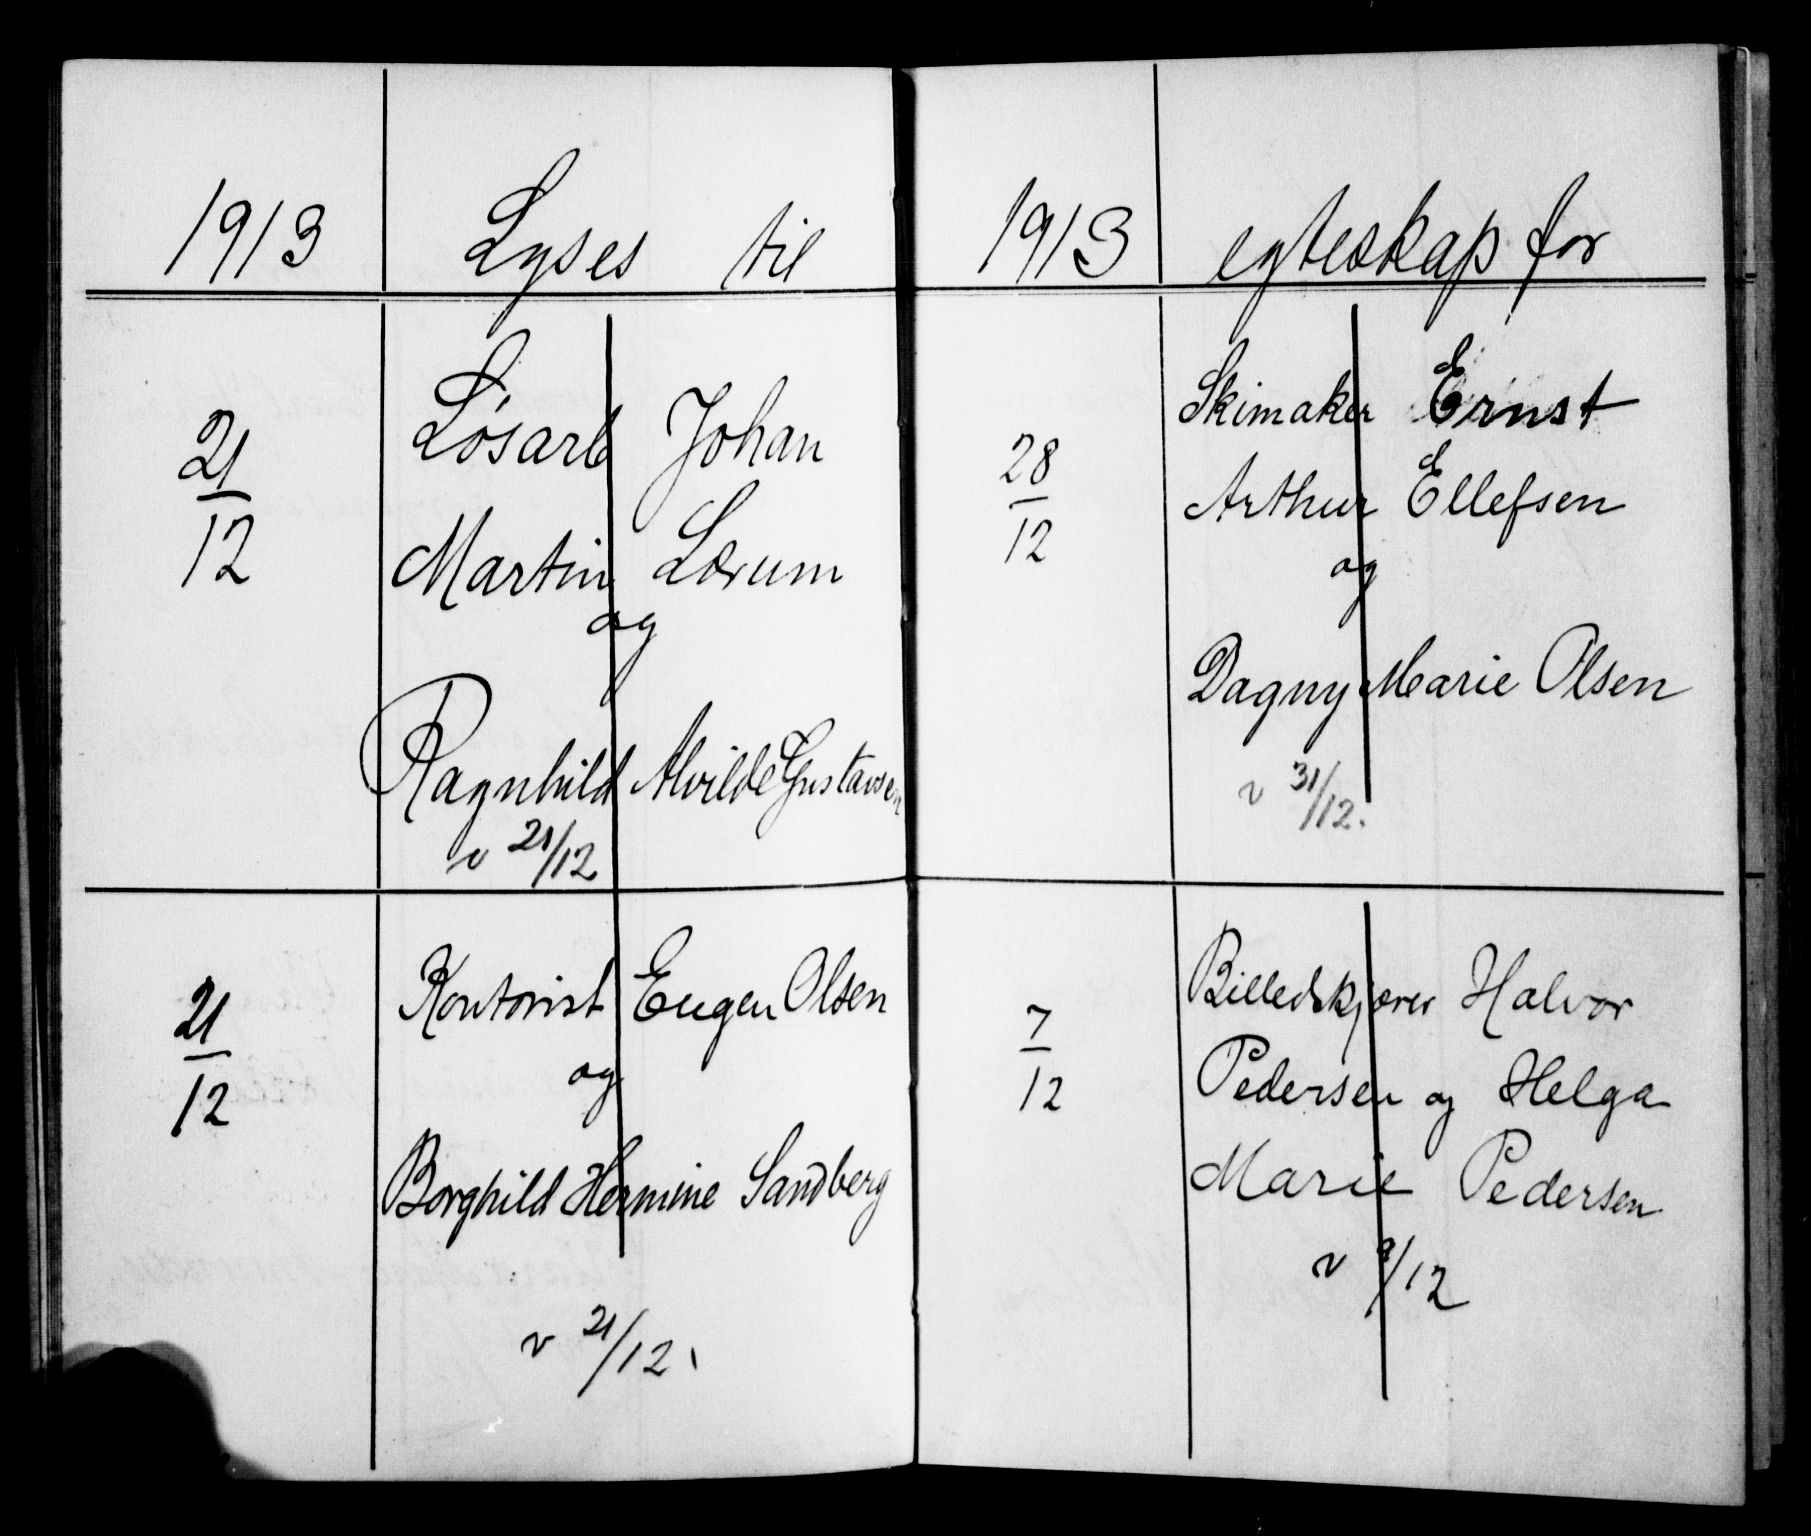 1913
Lyses til
21
12
Løsarb Johan
Martin Lærum
og
Ragnhild Alvilde Gustavsen
v 21/12
21
12
Kontorist Eugen Olsen
og
Borghild Hermine Sandberg
v 21/12.
1913
egteskap for
28
12
Skimaker Ernst
Arthur Ellefsen
og
Dagny Marie Olsen
v 31/12.
7
12
Billedskjærer Halvor
Pedersen og Helga
Marie Pedersen
v 9/12